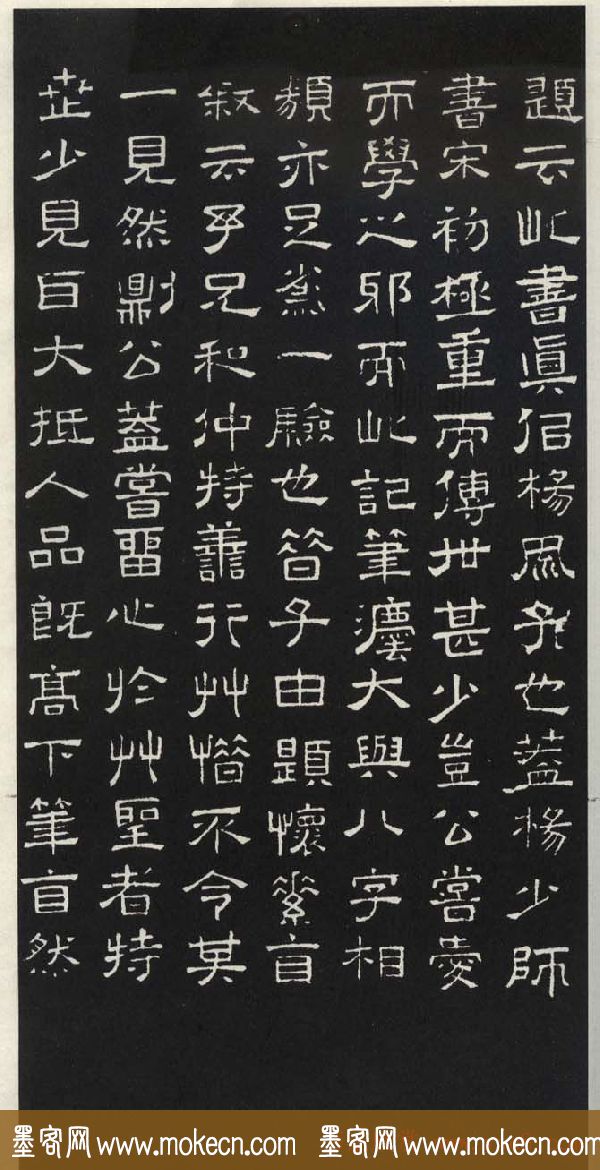 題云此書眞佀楊風子也蓋楊少師
書宋初極重而傳世甚少豈公嘗愛
而學之邪而此記筆灋大與八字相
類亦足爲一驗也昔子由題懷素自
叙云予兄和仲特善行艸惜不令其
一見然則公蓋嘗留心於艸聖者特
世少見耳大抵人品旣高下筆自然
墨客网 www.mokecn.com 墨客网 www.mokecn.com